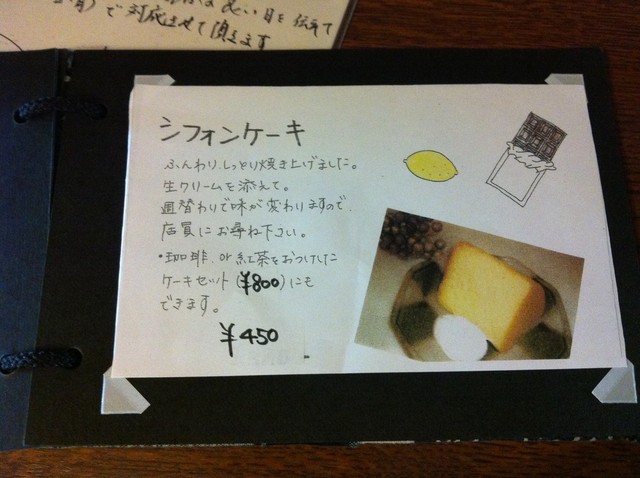 で対応させて頂きます
シフォンケーキ
ふんわり、しっとり焼き上げました。
生クリームを添えて。
週替わりで味が変わりますので、
店員にお尋ね下さい。
・珈琲、or 紅茶をおつけした
ケーキセット(¥800)にも
できます。
¥450